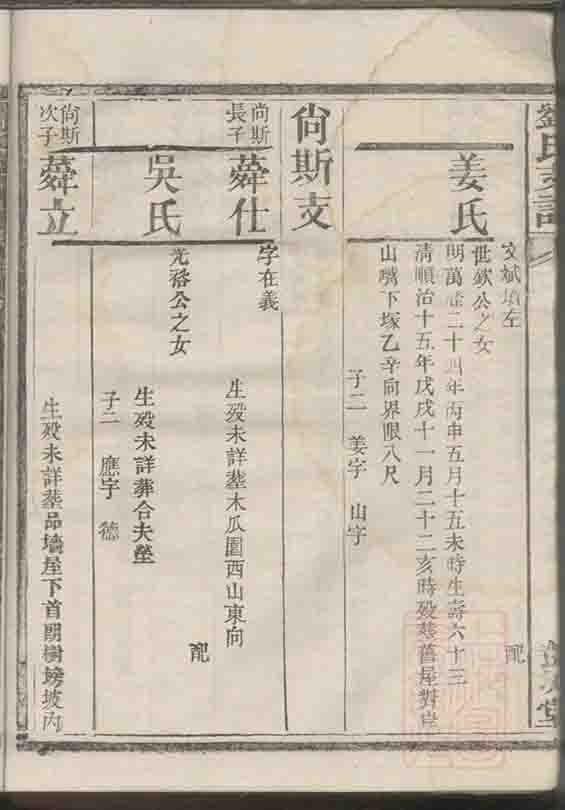 劉氏支譜
文斌墳左
配
姜氏
世欽公之女
明萬歷二十四年丙申五月十五未時生壽六十三
清順治十五年戊戌十一月二十二亥時歿葬舊屋對岸
山嘴下塚乙辛向界限八尺
子二 姜字 山字
尙斯支
尙斯長子
舜仕
字在義
生歿未詳塟木瓜園西山東向
配
吳氏
光裕公之女
生歿未詳葬合夫塋
子二 應字 德
尙斯次子
舜立
生歿未詳塟品墻屋下首朋樹塝坡內